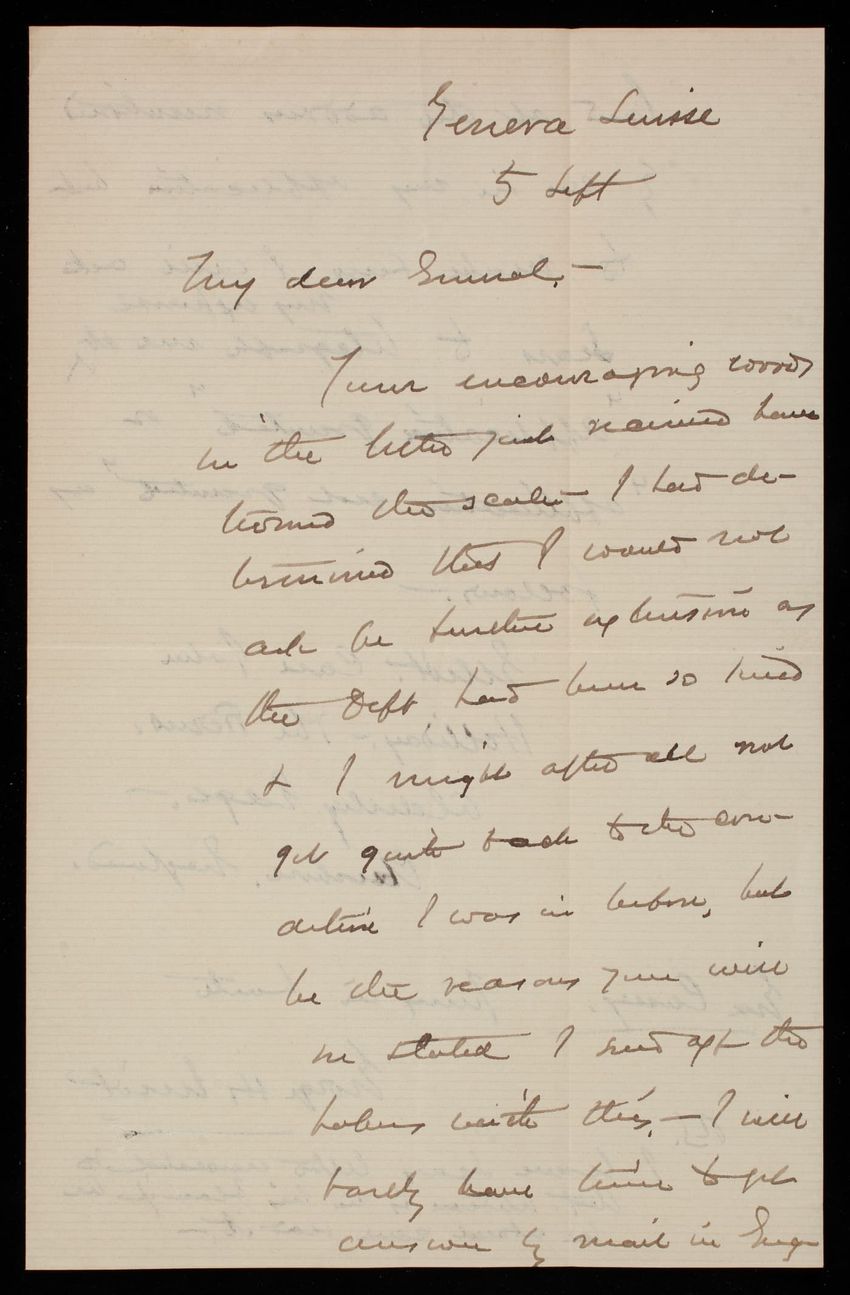 Geneva Suisse
5 Sept
My dear General,—
Your encouraging words
in the letter just received have
turned the scale— I had de-
termined that I would not
ask for further extension as
the Dept had been so kind
& I might after all not
get quite back to the con-
dition I was in before, but
for the reasons you will
see stated I send off the
papers with this.— I will
barely have time to get
answer by mail in Eng